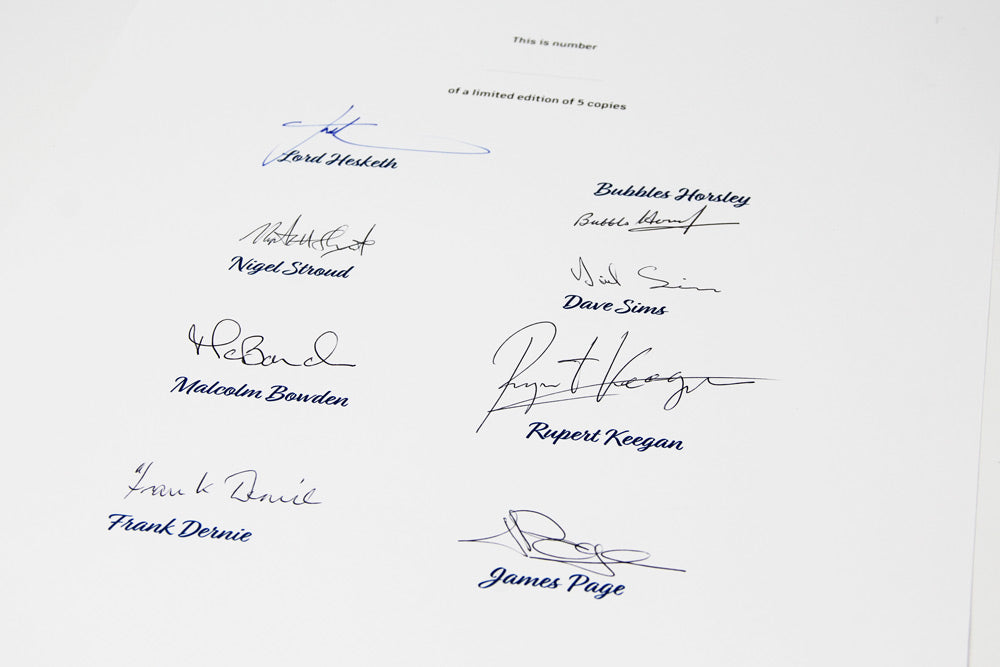 This is number
of a limited edition of 5 copies
Lord Hesketh
Bubbles Horsley
Bubbles Horsley
Nigel Stroud
Dave Sims
Malcolm Bowden
Rupert Keegan
Rupert Keegan
Frank Dernie
Frank Dernie
James Page